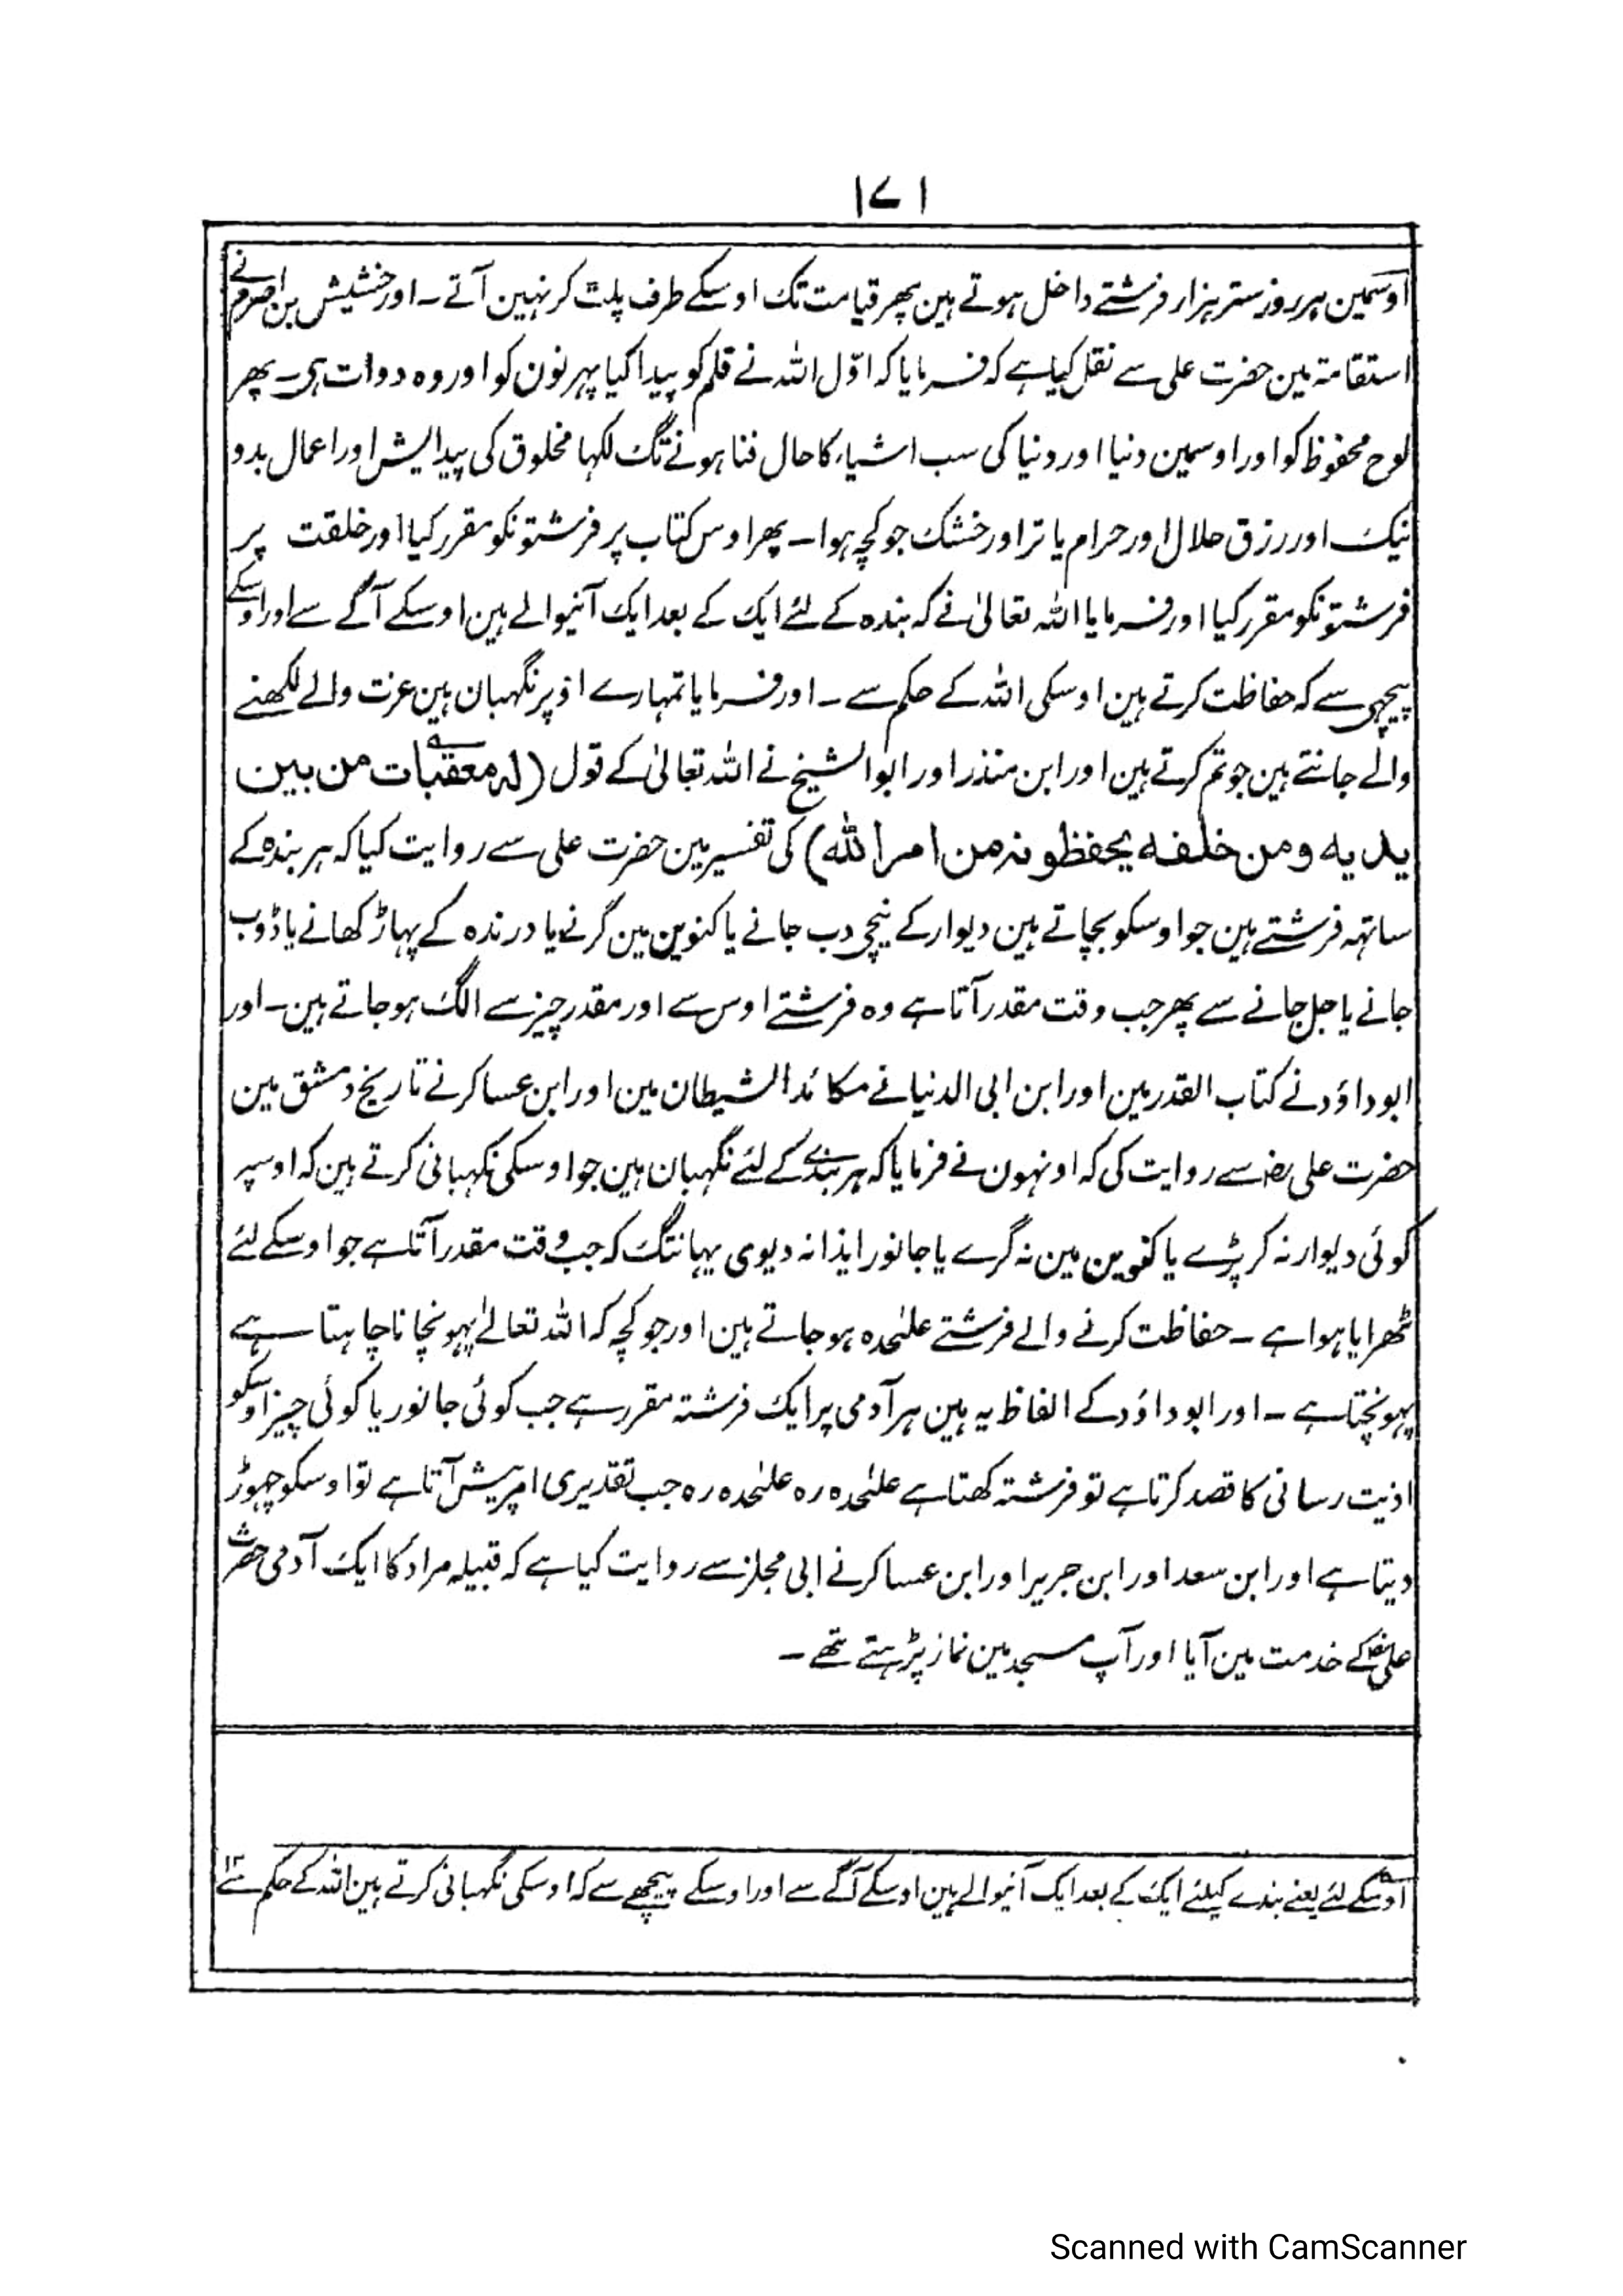 ۱۷۱
اوسمین ہر روز ستر ہزار فرشتے داخل ہوتے ہین پھر قیامت تک اوسکے طرف پلٹ کر نہین آتے ۔ اور خشیش بن اصرم نے
استقامۃ مین حضرت علی سے نقل کیا ہے کہ فرمایا کہ اوّل اللہ نے قلم کو پیدا کیا پہر نون کو اور وہ دوات ہی ۔ پھر
لوح محفوظ کو اور اوسمین دنیا اور دنیا کی سب اشیاء کا حال فنا ہونے تک لکھا مخلوق کی پیدایش اور اعمال بد و
نیک اور رزق حلال اور حرام یا تر اور خشک جو کچہ ہوا ۔ پھر اوس کتاب پر فرشتونکو مقرر کیا اور خلقت پر
فرشتونکو مقرر کیا اور فرمایا اللہ تعالیٰ نے کہ بندہ کے لئے ایک کے بعد ایک آنیوالے ہین اوسکے آگے سے اور اوسکے
پیچہی سے کہ حفاظت کرتے ہین اوسکی اللہ کے حکم سے ۔ اور فرمایا تمہارے اوپر نگہبان ہین عزت والے لکھنے
والے جانتے ہین جو تم کرتے ہین اور ابن منذر اور ابو الشیخ نے اللہ تعالیٰ کے قول (لہ معقبات من بین
یدیہ ومن خلفہ یحفظونہ من امر اللہ) کی تفسیر مین حضرت علی سے روایت کیا کہ ہر بندہ کے
ساتہہ فرشتے ہین جو اوسکو بچاتے ہین دیوار کے نیچی دب جانے یا کنوین مین گرنے یا درندہ کے پہاڑ کھانے یا ڈوب
جانے یا جل جانے سے پھر جب وقت مقدر آتا ہے وہ فرشتے اوس سے اور مقدر چیز سے الگ ہو جاتے ہین ۔ اور
ابو داؤد نے کتاب القدر مین اور ابن ابی الدنیا نے مکائد الشیطان مین اور ابن عساکر نے تاریخ دمشق مین
حضرت علی رضہ سے روایت کی کہ اونہون نے فرمایا کہ ہر بندے کے لئے نگہبان ہین جو اوسکی نگہبانی کرتے ہین کہ اوسپر
کوئی دیوار نہ گر پڑے یا کنوین مین نہ گرے یا جانور ایذا نہ دیوی یہانتک کہ جب وقت مقدر آتا ہے جو اوسکے لئے
ٹھرایا ہوا ہے ۔ حفاظت کرنے والے فرشتے علیٰحدہ ہو جاتے ہین اور جو کچہ کہ اللہ تعالےٰ پہونچانا چاہتا ہے
پہونچتا ہے ۔ اور ابو داؤد کے الفاظ یہ ہین ہر آدمی پر ایک فرشتہ مقرر ہے جب کوئی جانور یا کوئی چیز اوسکو
اذیت رسانی کا قصد کرتا ہے تو فرشتہ کھتا ہے علیٰحدہ رہ علیٰحدہ رہ جب تقدیری امر پیش آتا ہے تو اوسکو چہوڑ
دیتا ہے اور ابن سعد اور ابن جریر اور ابن عساکر نے ابی مجلز سے روایت کیا ہے کہ قبیلہ مراد کا ایک آدمی حضرت
علی رضہ کے خدمت مین آیا اور آپ مسجد مین نماز پڑہتے تھے ۔
اوسکے لئے یعنے بندے کیلئے ایک کے بعد ایک آنیوالے ہین اوسکے آگے سے اور اوسکے پیچھے سے کہ اوسکی نگہبانی کرتے ہین اللہ کے حکم سے ۱۲
Scanned with CamScanner